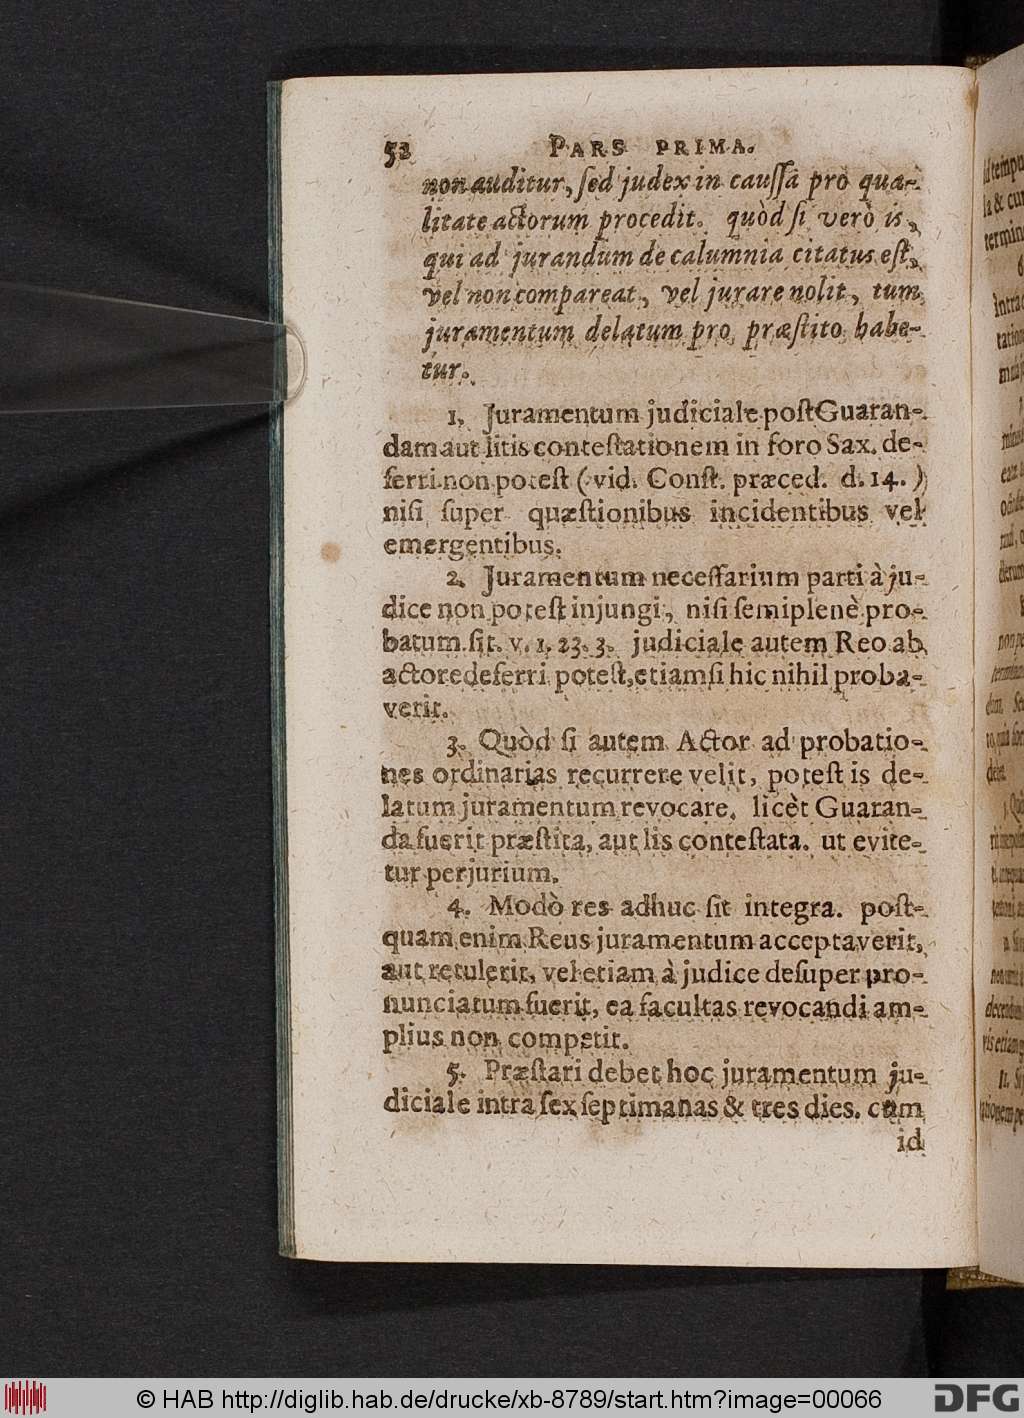 52 PARS PRIMA.
non auditur, ſed judex in cauſſâ pro qua-
litate actorum procedit. quòd ſi verò is,
qui ad jurandum de calumnia citatus eſt,
vel non compareat, vel jurare nolit, tum
juramentum delatum pro præſtito habe-
tur.
1. Juramentum judiciale poſt Guaran-
dam aut litis conteſtationem in foro Sax. de-
ferri non poteſt (vid. Conſt. præced. d. 14.)
niſi ſuper quæſtionibus incidentibus vel
emergentibus.
2. Juramentum neceſſarium parti à ju-
dice non poteſt injungi, niſi ſemiplenè pro-
batum ſit. v. 1. 23. 3. judiciale autem Reo ab
actore deferri poteſt, etiamſi hic nihil proba-
verit.
3. Quòd ſi autem Actor ad probatio-
nes ordinarias recurrere velit, poteſt is de-
latum juramentum revocare. licèt Guaran-
da fuerit præſtita, aut lis conteſtata. ut evite-
tur perjurium.
4. Modò res adhuc ſit integra. poſt-
quam enim Reus juramentum acceptaverit,
aut retulerit, vel etiam à judice deſuper pro-
nunciatum fuerit, ea facultas revocandi am-
plius non competit.
5. Præſtari debet hoc juramentum ju-
diciale intra ſex ſeptimanas & tres dies. cùm
id
© HAB http://diglib.hab.de/drucke/xb-8789/start.htm?image=00066
DFG